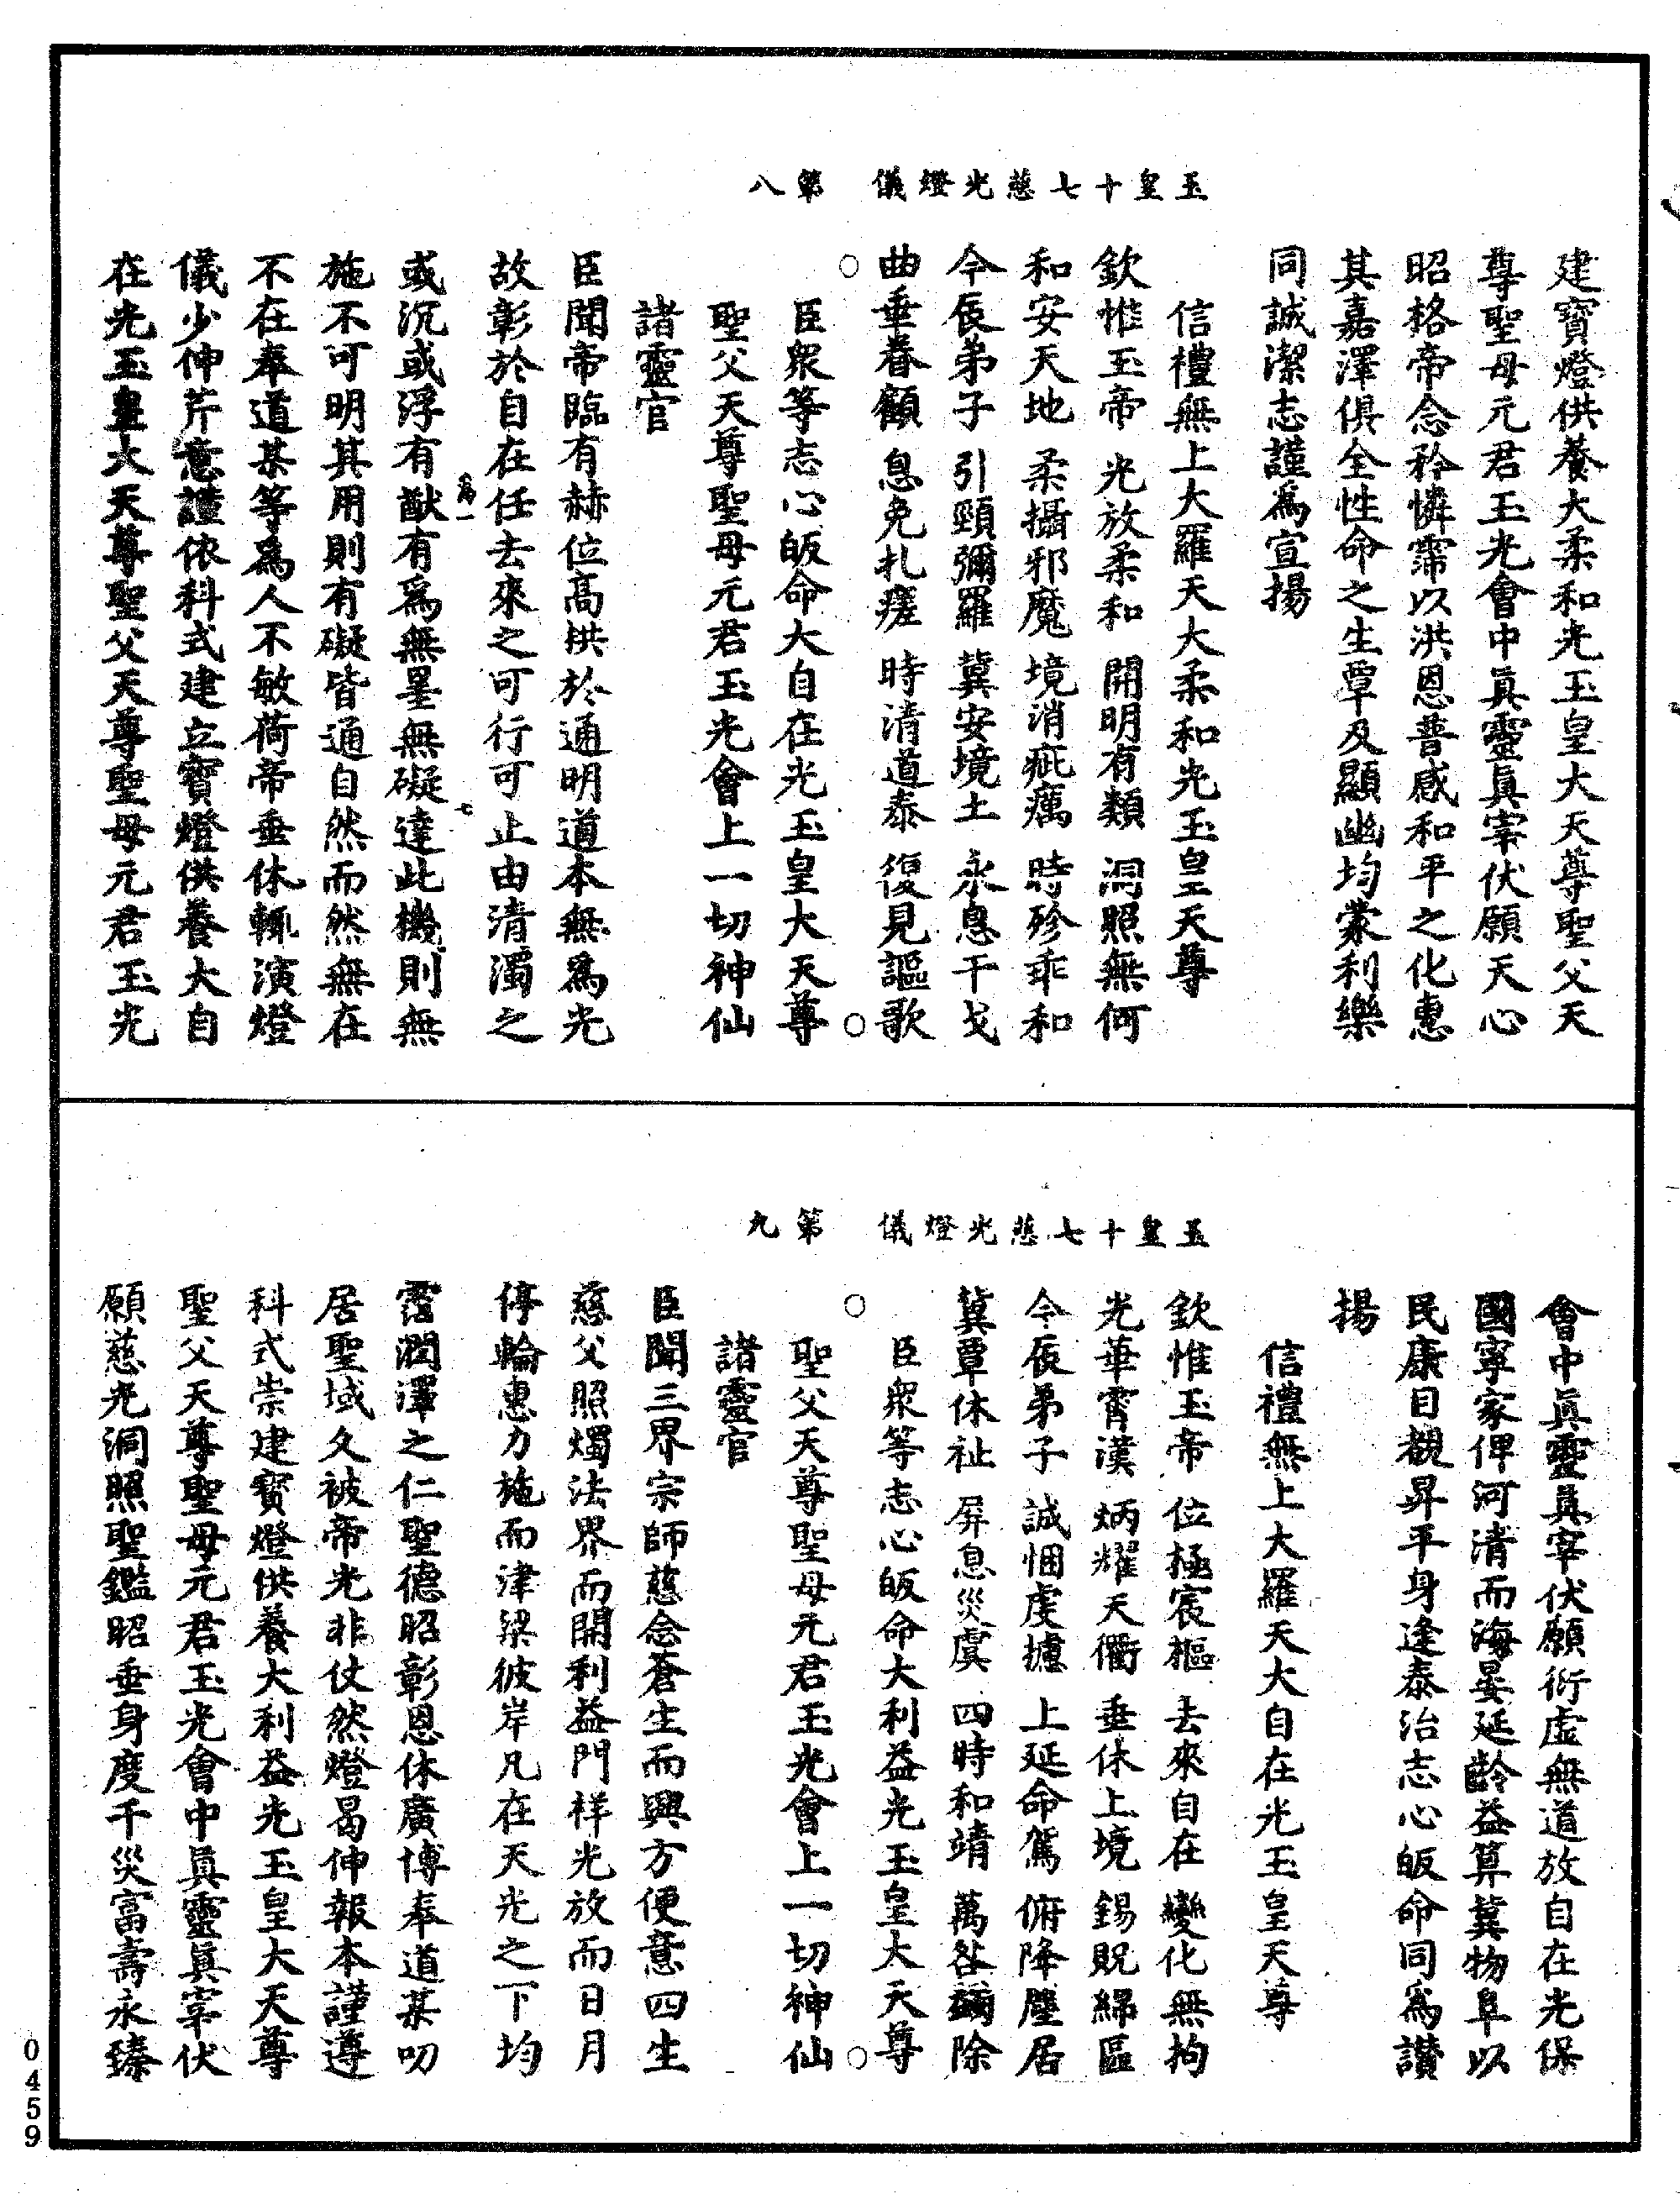 玉皇十七慈光燈儀　第八
建寶燈供養大柔和光玉皇大天尊聖父天
尊聖母元君玉光會中眞靈眞宰伏願天心
昭格帝念矜憐霈以洪恩普感和平之化惠
其嘉澤俱全性命之生覃及顯幽均蒙利樂
同誠潔志謹爲宣揚
信禮無上大羅天大柔和光玉皇天尊
欽惟玉帝　光放柔和　開明有類　洞照無何
和安天地　柔攝邪魔　境消疵癘　時殄乖和
今辰弟子　引頸彌羅　冀安境土　永息干戈
曲垂眷顧　息免札瘥　時清道泰　復見謳歌
○　○
臣衆等志心皈命大自在光玉皇大天尊
聖父天尊聖母元君玉光會上一切神仙
諸靈官
臣聞帝臨有赫位高拱於通明道本無爲光
故彰於自在任去來之可行可止由清濁之
爲一　七
或沉或浮有猷有爲無罣無礙達此機則無
施不可明其用則有礙皆通自然而然無在
不在奉道某等爲人不敏荷帝垂休輒演燈
儀少伸芹意謹依科式建立寶燈供養大自
在光玉皇大天尊聖父天尊聖母元君玉光
玉皇十七慈光燈儀　第九
會中眞靈眞宰伏願衍虛無道放自在光保
國寧家俾河清而海晏延齡益算冀物阜以
民康目覩昇平身逢泰治志心皈命同爲讚
揚
信禮無上大羅天大自在光玉皇天尊
欽惟玉帝　位極宸樞　去來自在　變化無拘
光華霄漢　炳耀天衢　垂休上境　錫貺綿區
今辰弟子　誠悃虔攄　上延命駕　俯降塵居
冀覃休祉　屏息災虞　四時和靖　萬咎蠲除
○　○
臣衆等志心皈命大利益光玉皇大天尊
聖父天尊聖母元君玉光會上一切神仙
諸靈官
臣聞三界宗師慈念蒼生而興方便意四生
慈父照燭法界而開利益門祥光放而日月
停輪惠力施而津梁彼岸凡在天光之下均
霑潤澤之仁聖德昭彰恩休廣博奉道某叨
居聖域久被帝光非仗然燈曷伸報本謹遵
科式崇建寶燈供養大利益光玉皇大天尊
聖父天尊聖母元君玉光會中眞靈眞宰伏
願慈光洞照聖鑑昭垂身度千災富壽永臻
0459